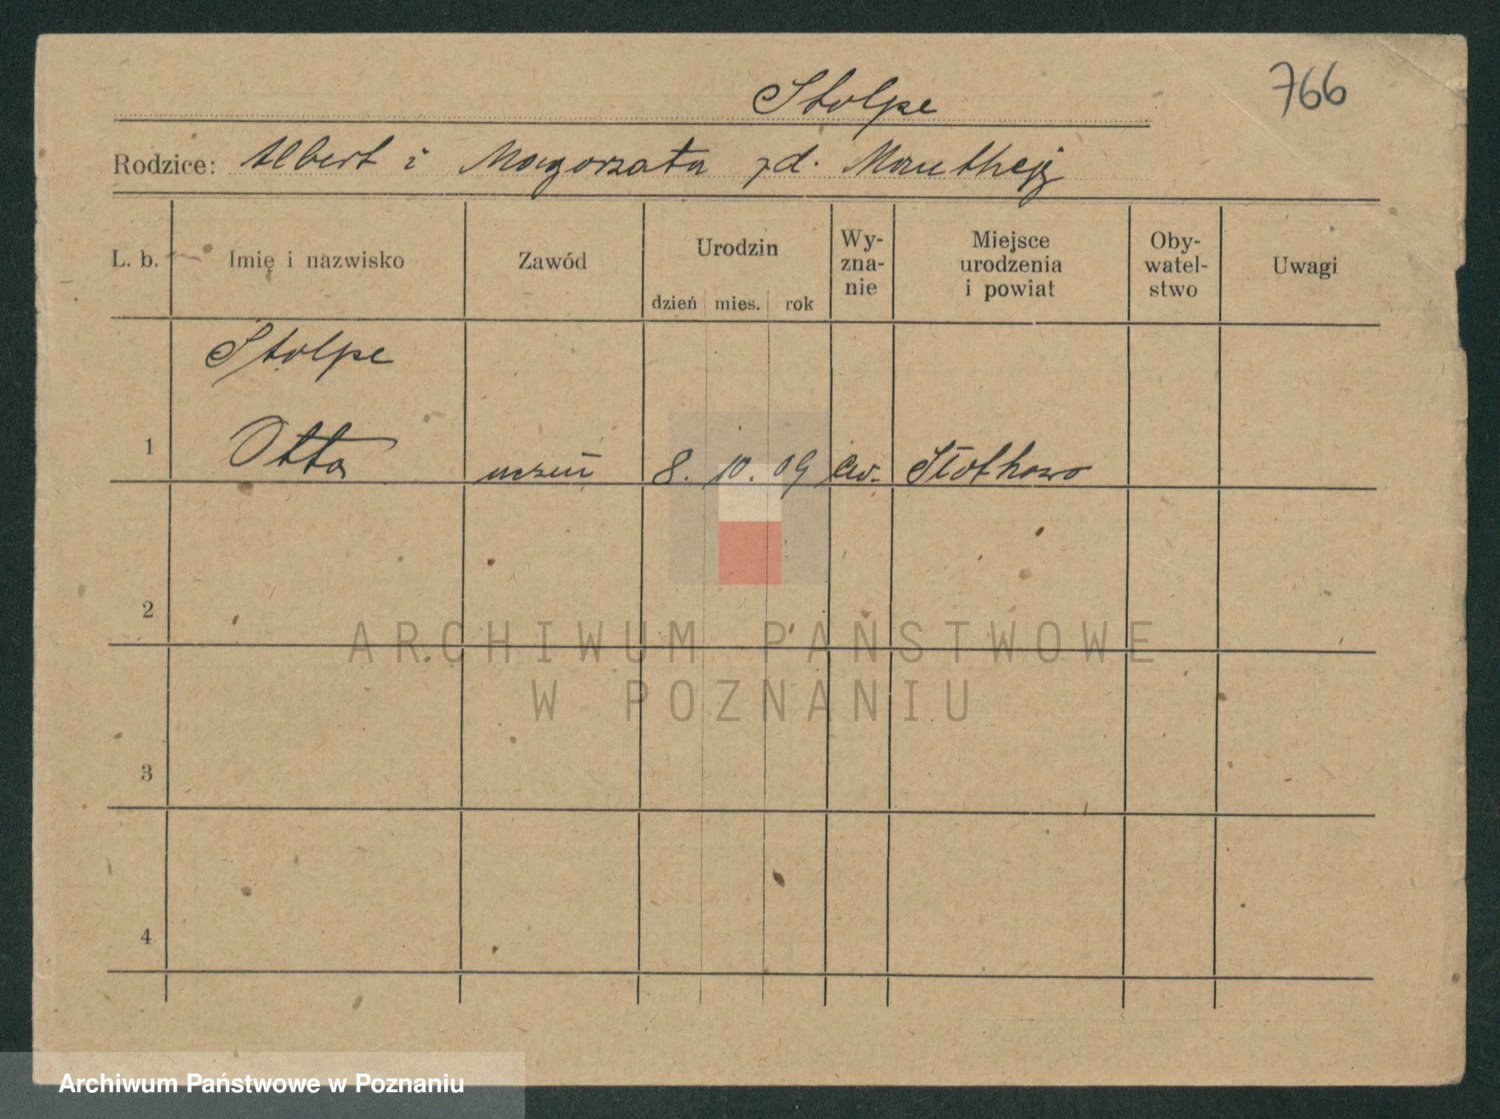 766
Stolpe
Rodzice: Albert i Małgorzata zd. Manthey
L. b. Imię i nazwisko Zawód Urodzin dzień mies. rok Wy-zna-nie Miejsce urodzenia i powiat Oby-watel-stwo Uwagi
Stolpe
1 Otto uczeń 8. 10. 09 ew.
2
3
4
ARCHIWUM PAŃSTWOWE
W POZNANIU
Archiwum Państwowe w Poznaniu